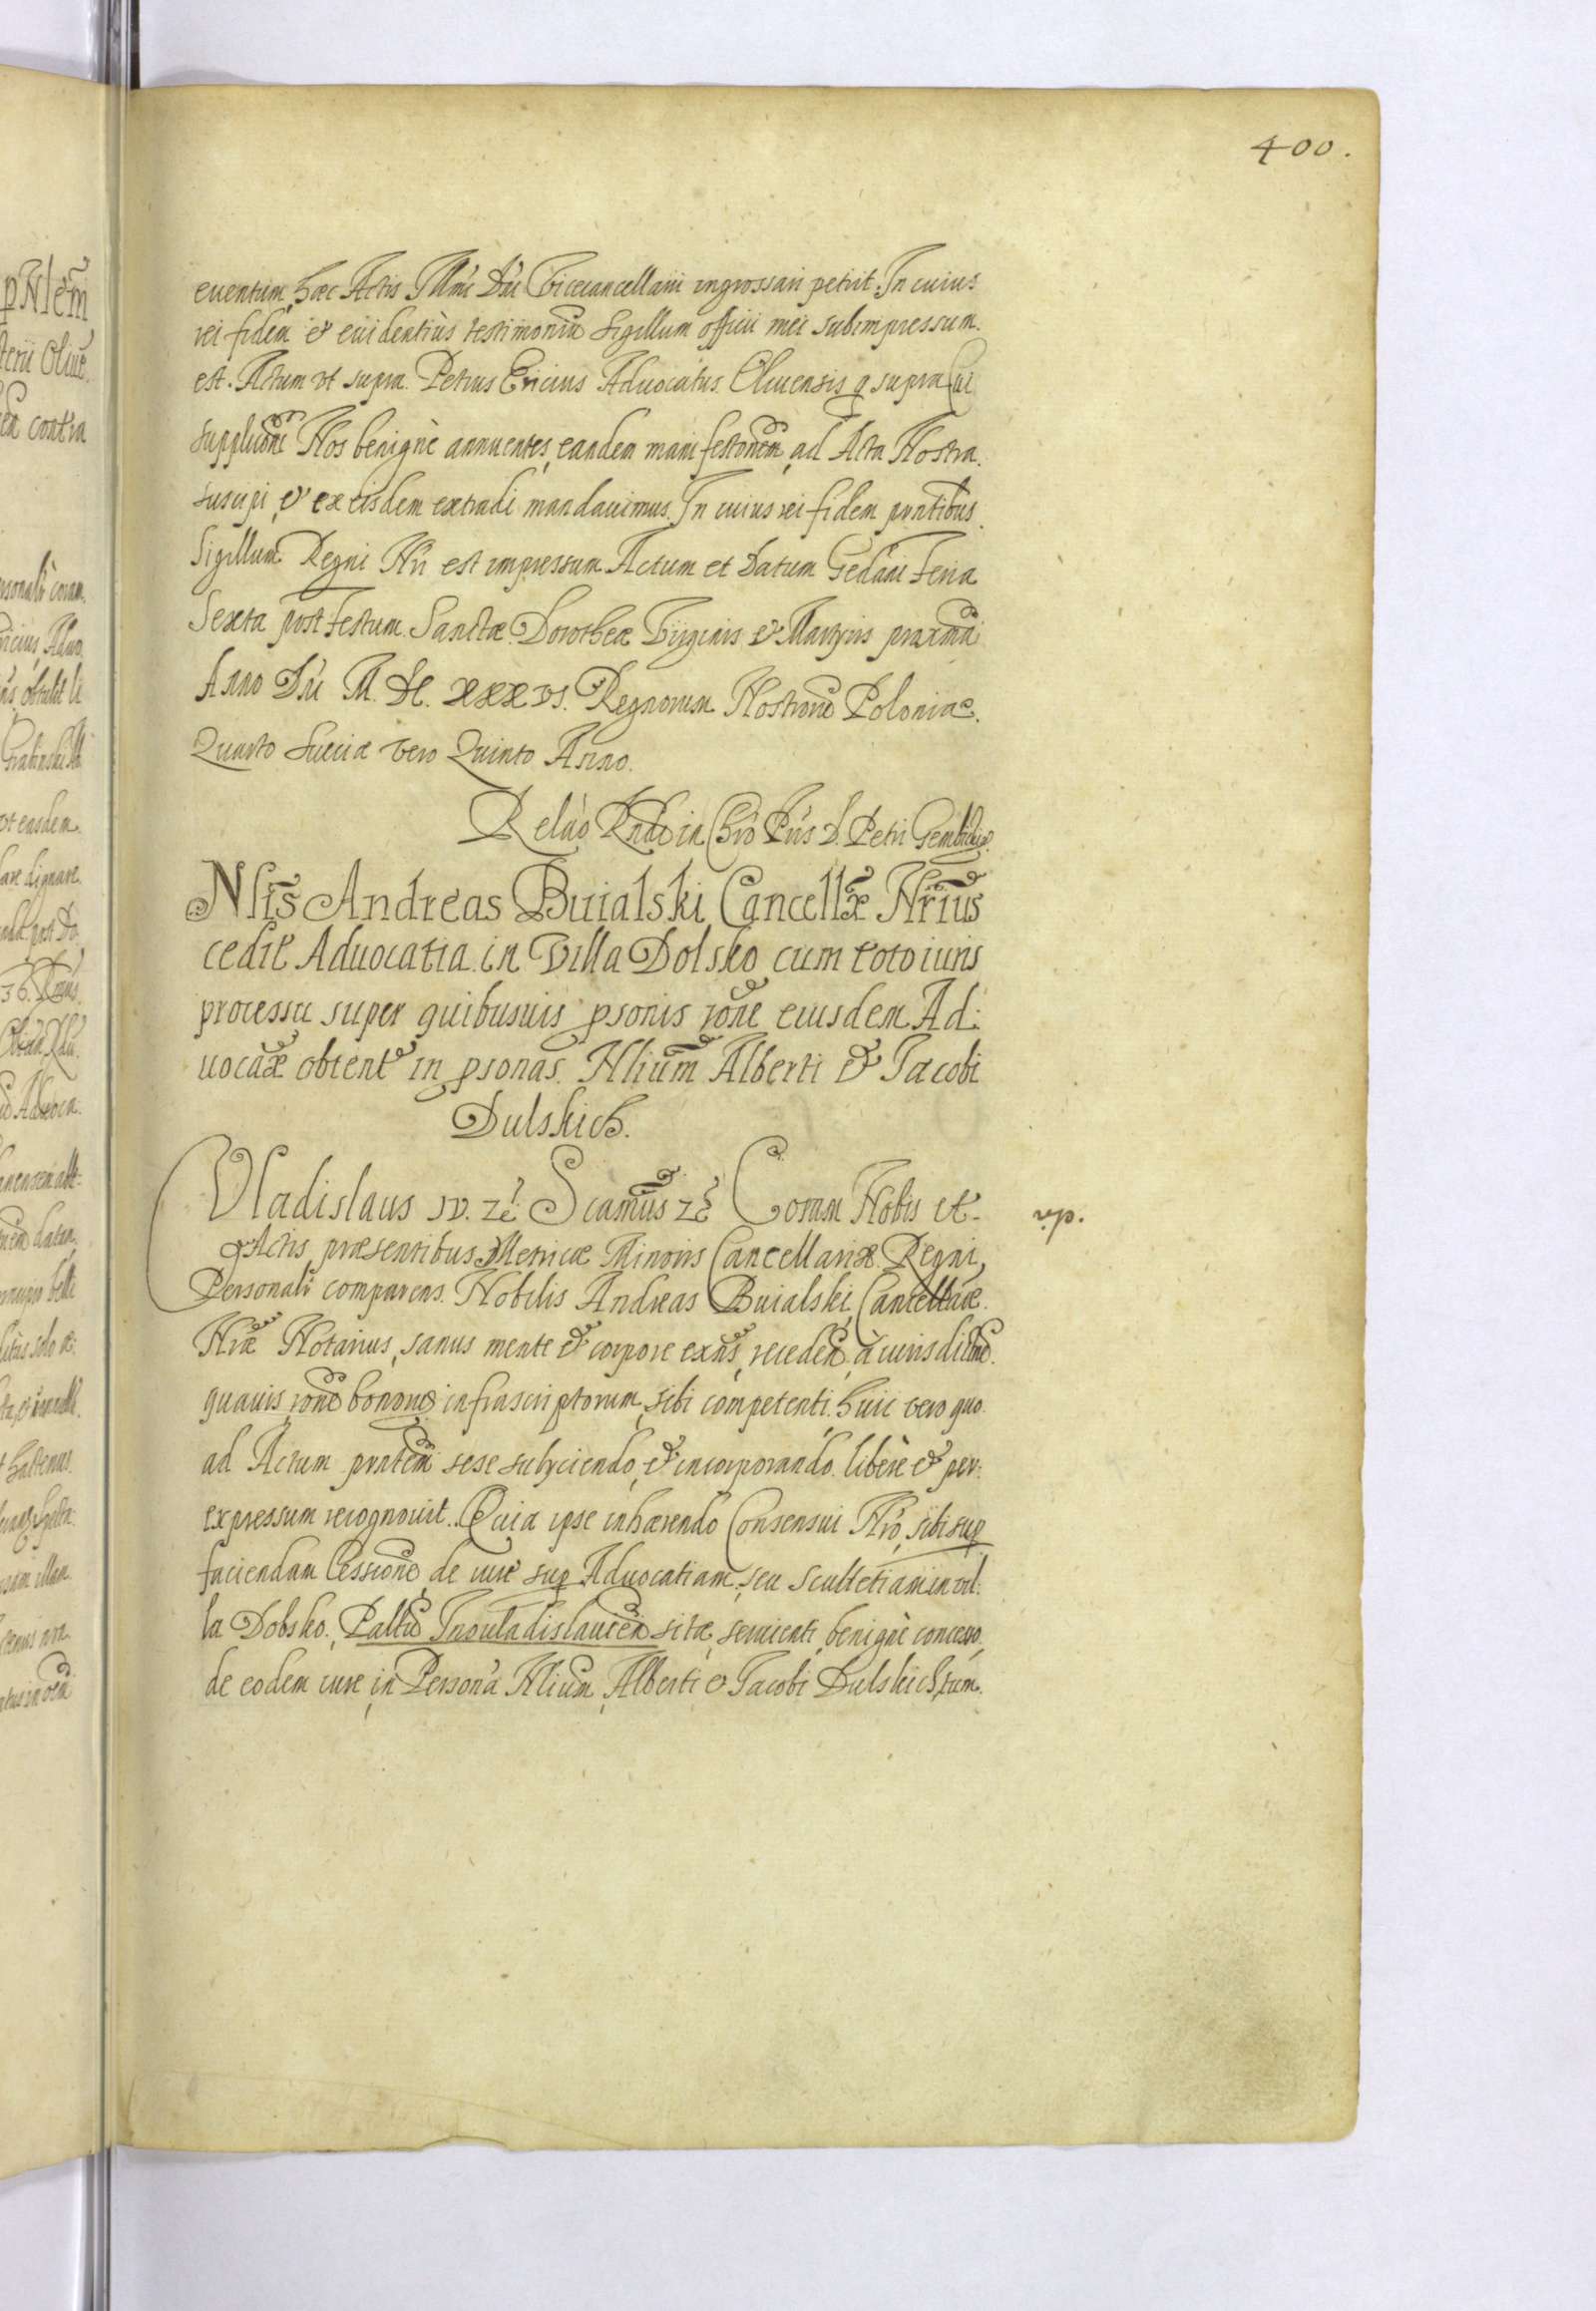 400.
euentum, hæc Actis Illmi Dni Vicecancellarii ingrossari petiit. In cuius
rei fidem et euidentius testimoniũ Sigillum officii mei subimpressum
est. Actum vt supra. Petrus Ericius Aduocatus Oliuensis q supra Cui
supplicõni Nos benignè annuentes, eandem manifestõnem, ad Acta Nostra
suscipi, et ex eisdem extradi mandauimus. In cuius rei fidem pñtibus
Sigillum Regni Nri est impressum Actum et Datum Gedani Feria
Sexta post Festum Sanctæ Dorotheæ Virginis et Martyris proxima
Anno Dni M. DC. XXXVI. Regnorum Nostrorũ Poloniae
Quarto Sueciæ vero Quinto Anno.
Relão Rndi in Chro Pris D. Petri Gembicki
Nlis Andreas Buialski Cancellæ Nrius
cedit Aduocatia in Villa Dolsko cum toto iuris
processu super quibusuis psonis rone eiusdem Ad:
uocãæ obtent in psonas Nlium Alberti et Jacobi
Dulskich.
Vladislaus IV. zc. Scamus zc. Coram Nobis et
Actis præsentibus Metricæ Minoris Cancellariæ Regni,
Personalr comparens Nobilis Andreas Buialski Cancellariæ
Nræ Notarius, sanus mente et corpore exñs, recedeñ, à iurisdictõne
quauis rone bonorũ infrascriptorum, sibi competenti. huic vero quo
ad Actum pñtem sese subyciendo, et incorporando. libere et per:
expressum recognouit. Quia ipse inhærendo Consensui Nro, sibi sup
faciendam Cessionẽ, de iure sup Aduocatiam, seu scultetiam in vil:
la Dobsko. Pallũ Inouladislauieñ sitæ, seruienti, benignè concesso
de eodem iure in Personã Nlium Alberti et Jacobi Dulskich, tum